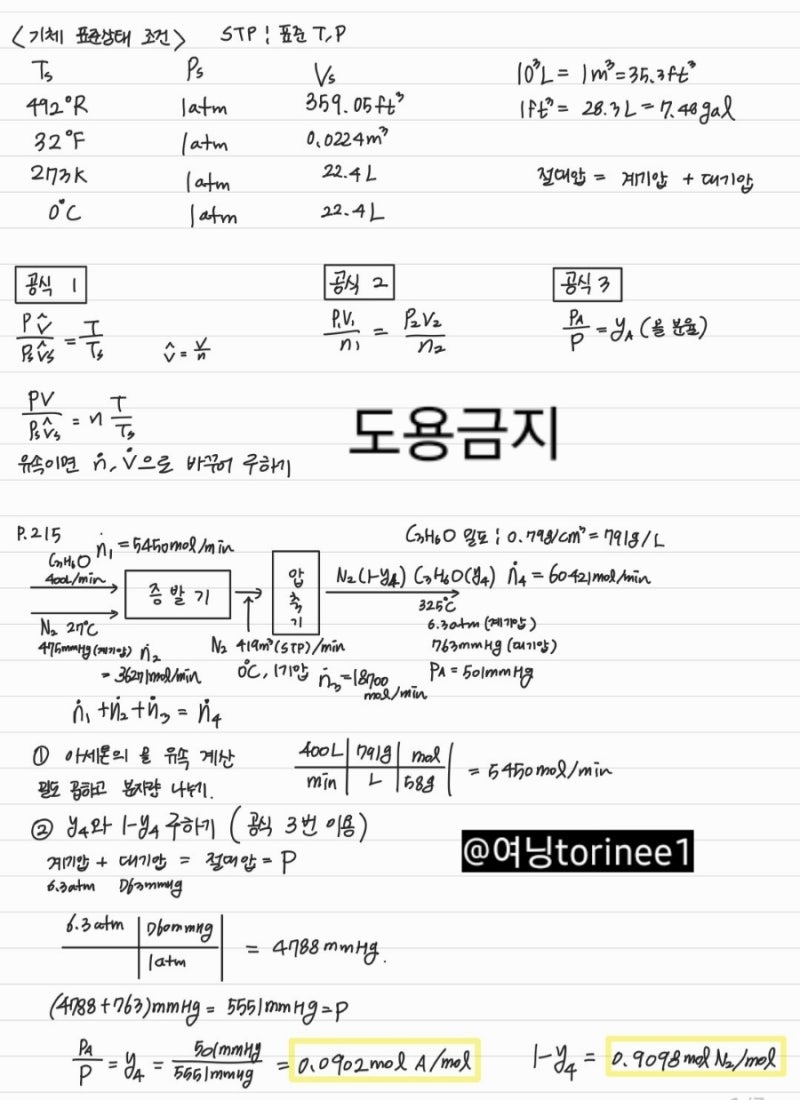 <기체 표준상태 조건> STP : 표준 T, P
Ts Ps Vs
492°R 1atm 359.05ft³
32°F 1atm 0.0224m³
273K 1atm 22.4L
0°C 1atm 22.4L
10³L = 1m³ = 35.3ft³
1ft³ = 28.3L = 7.48gal
절대압 = 계기압 + 대기압
공식 1
PV̂/PsV̂s = T/Ts V̂ = V/n
PV/PsV̂s = n T/Ts
유속이면 ṅ, V̇으로 바꾸어 구하기
공식 2
P₁V₁/n₁ = P₂V₂/n₂
공식 3
PA/P = yA (몰 분율)
도용금지
P.215
C₃H₆O 밀도 : 0.791g/cm³ = 791g/L
C₃H₆O ṅ₁ = 5450mol/min
400L/min
증발기
압축기
N₂ 27°C
475mmHg(계기압) ṅ₂
= 36271mol/min
N₂ 419m³(STP)/min
0°C, 1기압 ṅ₃ = 18700
mol/min
N₂(1-y₄) C₃H₆O(y₄) ṅ₄ = 60421mol/min
325°C
6.3atm (계기압)
763mmHg (대기압)
PA = 501mmHg
ṅ₁ + ṅ₂ + ṅ₃ = ṅ₄
① 아세톤의 몰 유속 계산
밀도 곱하고 분자량 나누기.
400L | 791g | mol
min | L | 58g
= 5450mol/min
② y₄와 1-y₄ 구하기 (공식 3번 이용)
계기압 + 대기압 = 절대압 = P
6.3atm 763mmHg
@여닝torinee1
6.3atm | 760mmHg
1atm
= 4788mmHg.
(4788+763)mmHg = 5551mmHg = P
PA/P = y₄ = 501mmHg/5551mmHg = 0.0902mol A/mol 1-y₄ = 0.9098mol N₂/mol